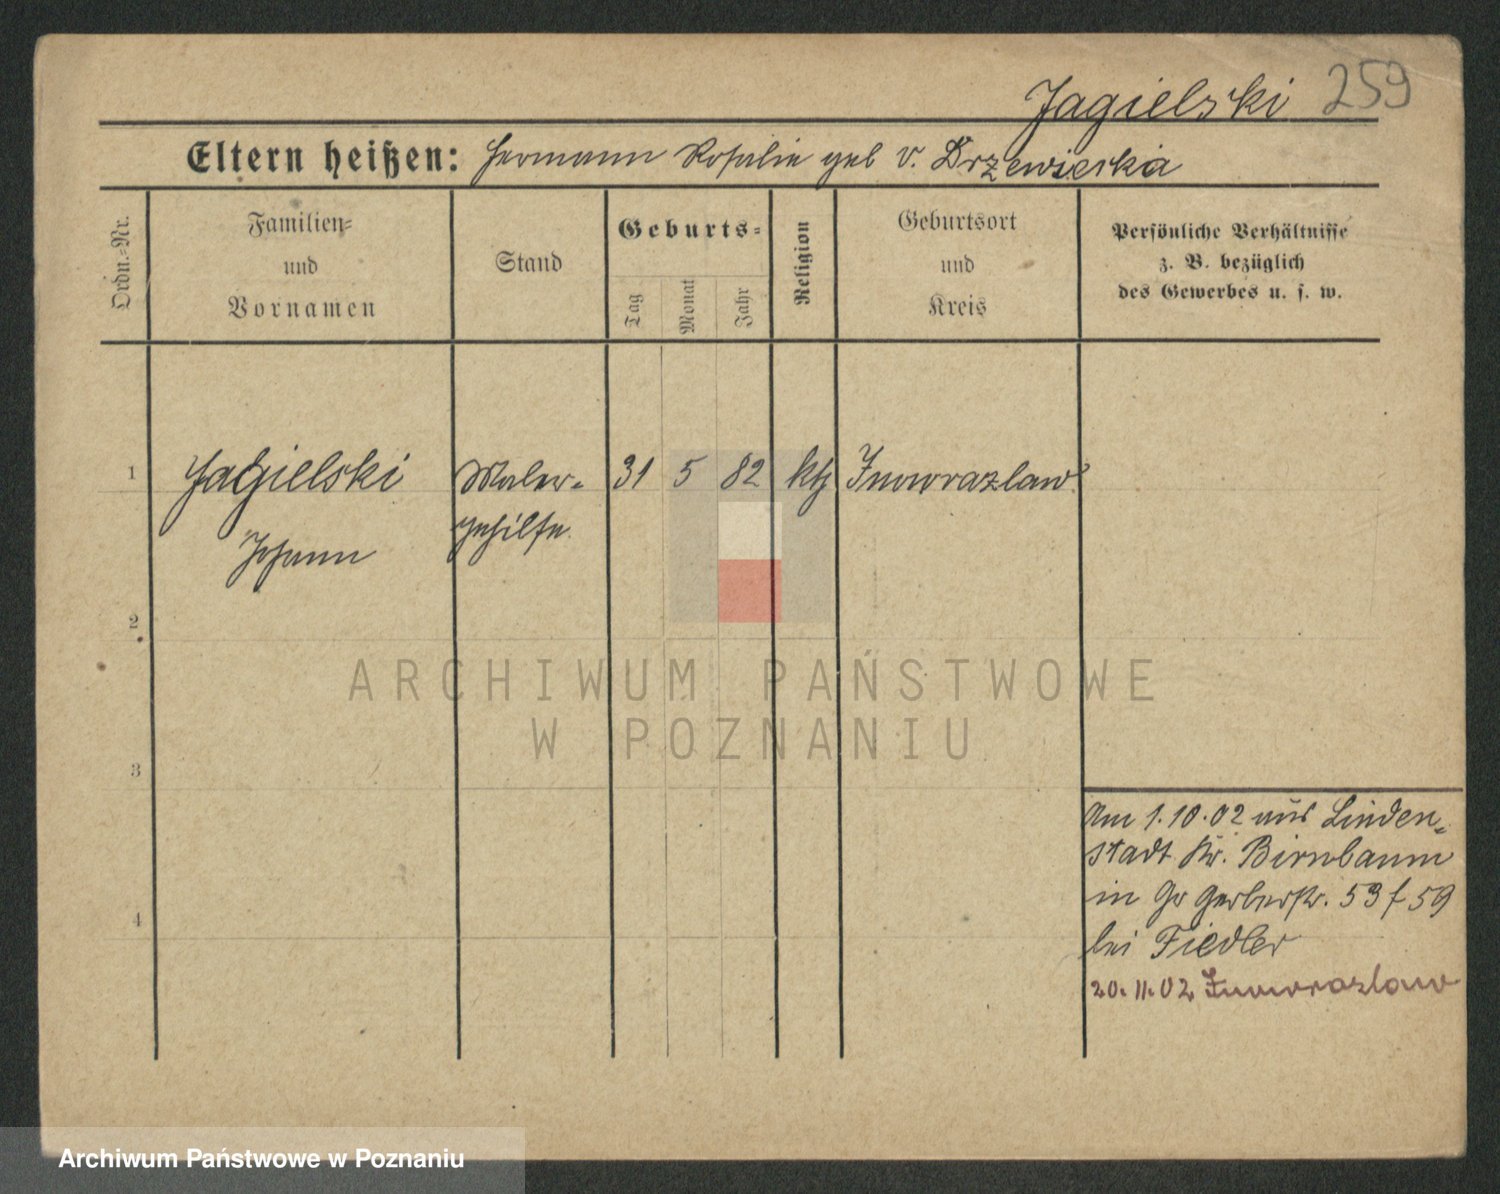 Jagielski 259
Eltern heißen: Hermann Rosalie geb v. Drzewiecka
Ordn.=Nr.
Familien=
und
Vornamen
Stand
Geburts=
Tag
Monat
Jahr
Religion
Geburtsort
und
Kreis
Persönliche Verhältnisse
z. B. bezüglich
des Gewerbes u. s. w.
1 Jagielski Maler= 31 5 82 kth Inowrazlaw
Johann gehilfe.
2
3
4
Am 1.10.02 aus Linden=
stadt Kr. Birnbaum
in Gr Gerberstr. 53 f 59
bei Fiedler
20.11.02 Inowrazlaw
ARCHIWUM PAŃSTWOWE
W POZNANIU
Archiwum Państwowe w Poznaniu